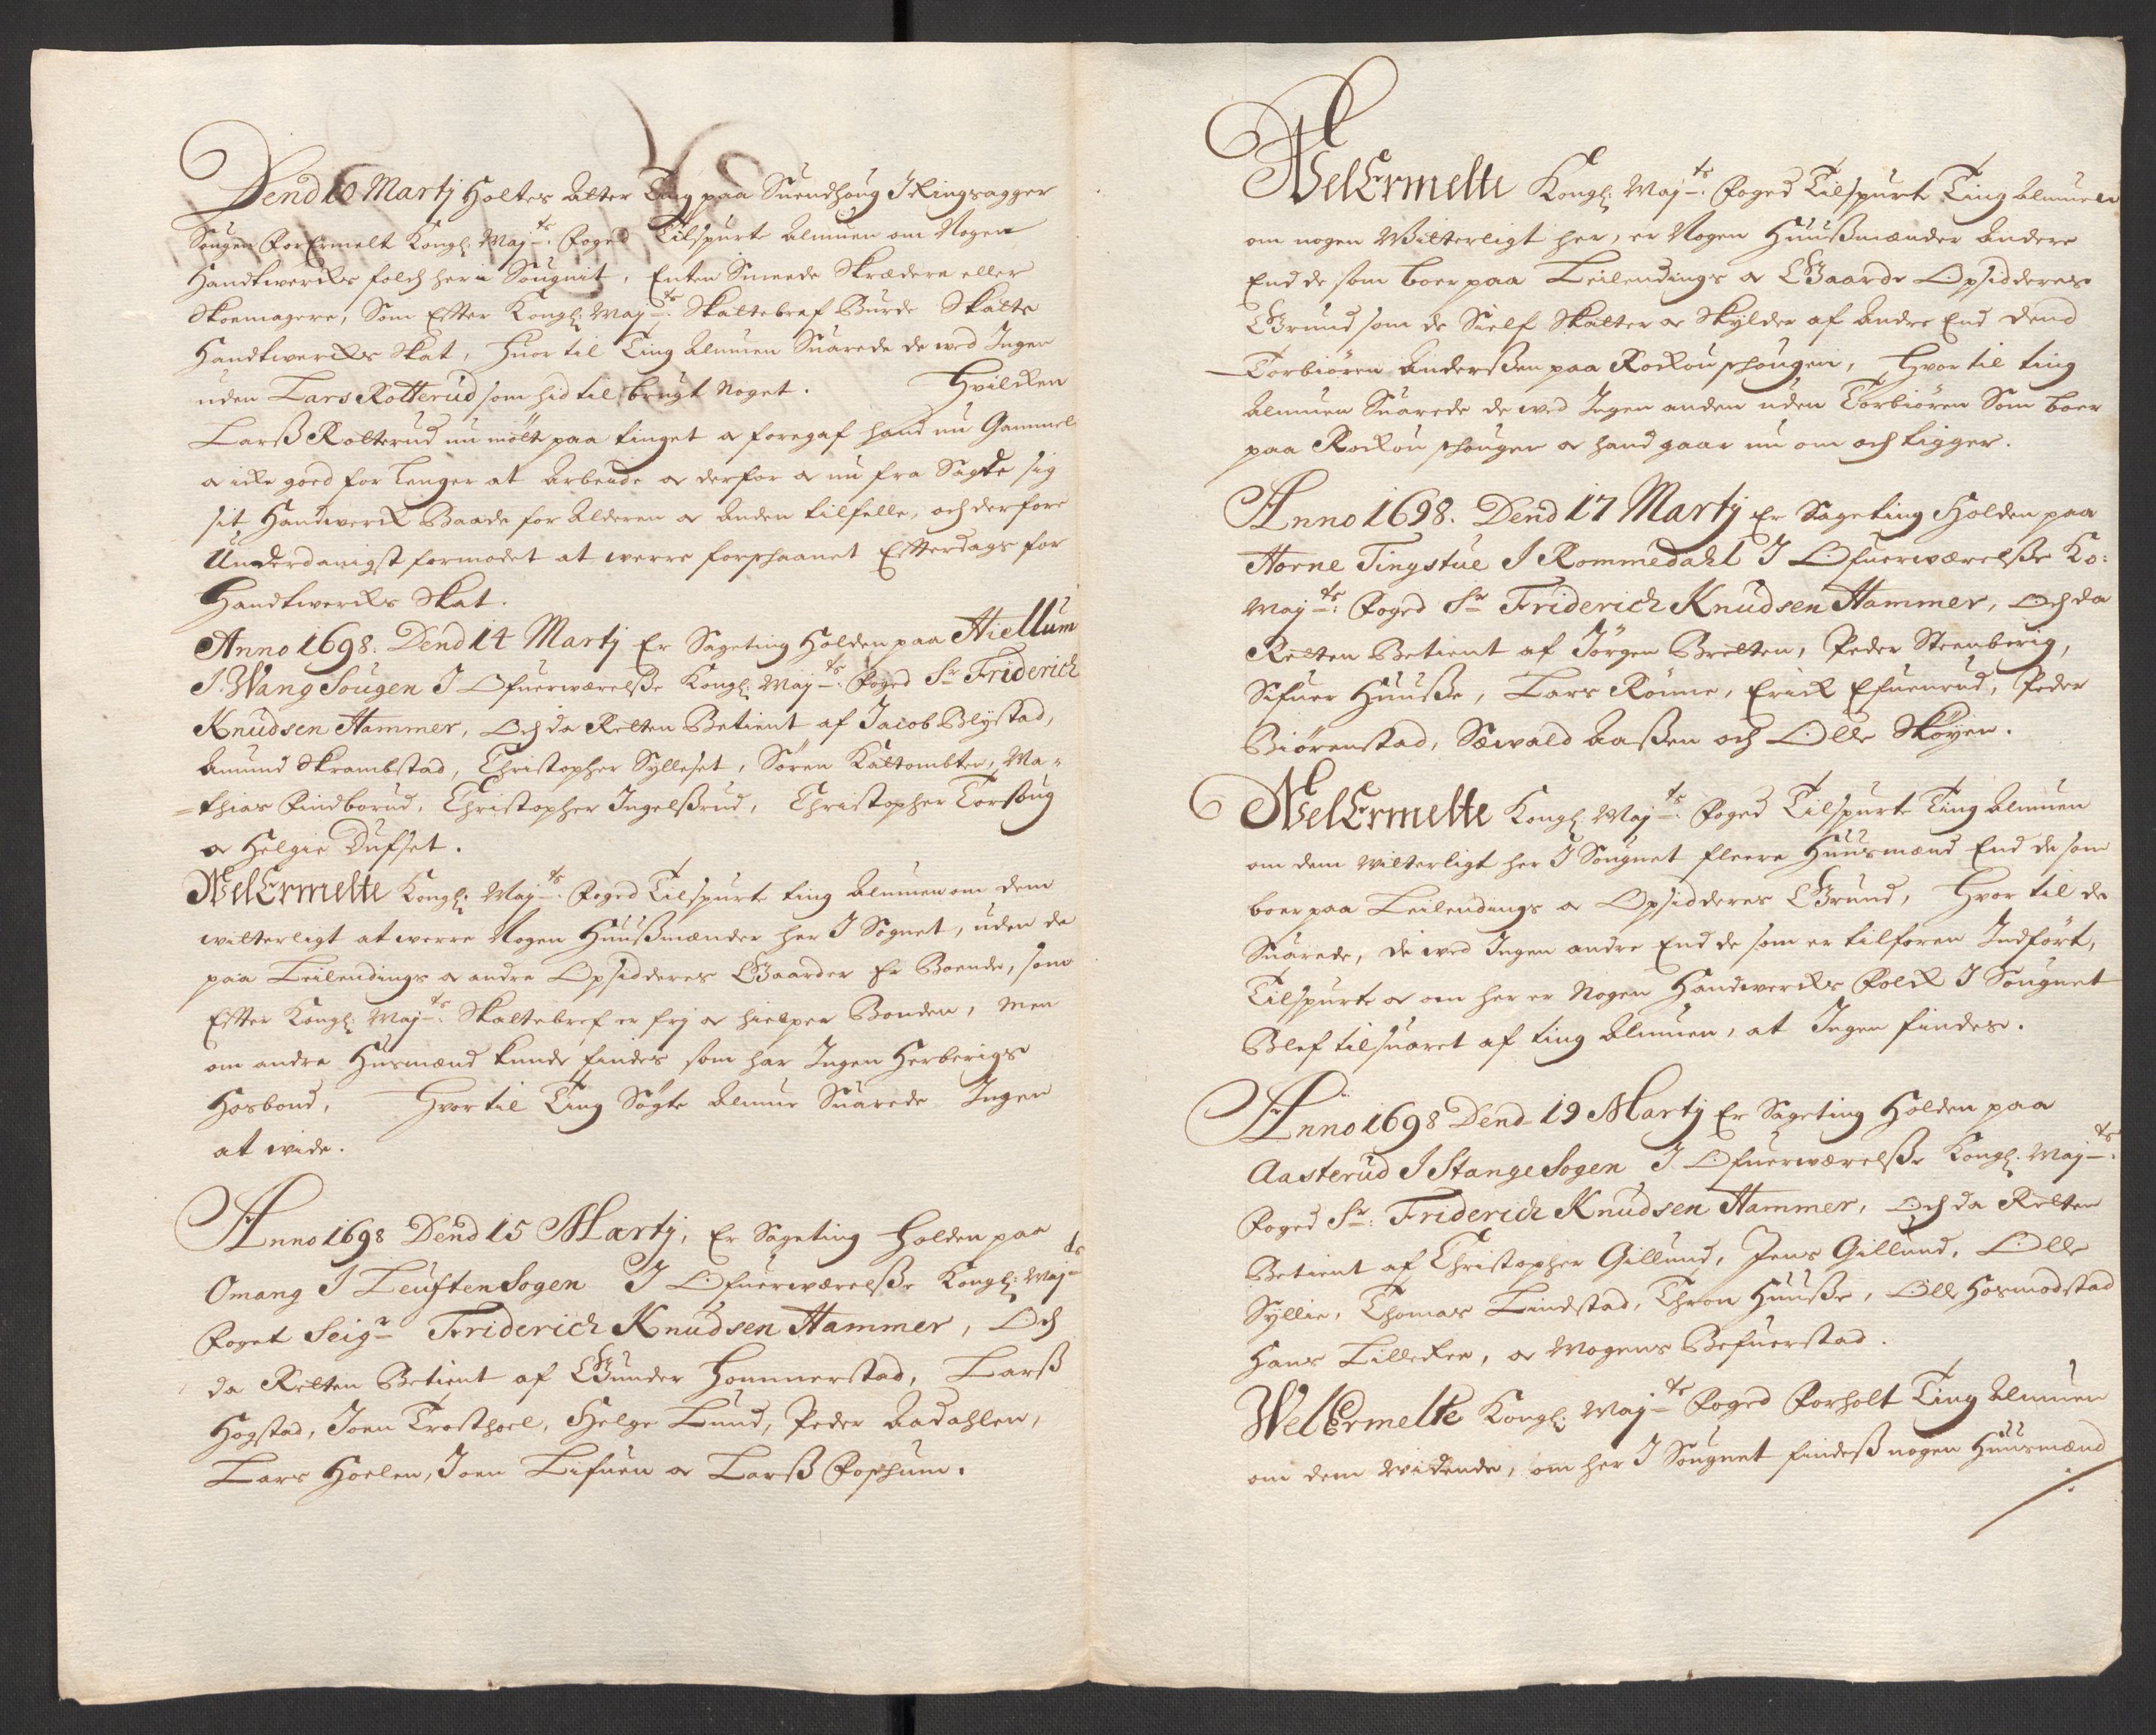 Dend 10 Martj Holtes atter Ting paa Suendhoug J Ringsagger
Sougen ForErmelt Kongl: Maj.ts Foged Tilspurte Almuen om Nogen
Handtwercks folch her i Sougnit, Enten Smeede Skrædere eller
Skoemagere, Som Efter Kongl: Maj.ts Skattebref Burde Skatte
Handtwercks Skat, Huor til Ting Almuen Suarede de wed Ingen
uden Lars Rotterud som hid til brugt noget. Hvilcken
Larß Rotterud nu møtt paa tinget og foregaf hand nu Gammel
og icke goed for lenger at Arbeide og derfor og nu fra Sagde sig
sit Handwerck Baade for Alderen og Anden tilfelle, och derfore
Underdanigst formodet at werre forskaanet Efterdags for
Handtwercks Skat.
Anno 1698. Dend 14 Martj Er Sageting Holden paa Hiellum
J. Wang Sougen J Ofuerwærelße Kongl: Maj.ts Foged Sr Friderich
Knudsen Hammer, Och da Retten Betient af Jacob Blystad,
Amund Skrambstad, Christopher Sylleset, Søren Kaltombter, Ma-
-thias Findborud, Christopher Ingelßrud, Christopher Torsoug
og Helgie Dufset.
WelErmelte Kongl: Maj.ts Foged Tilspurte ting Almuen om dem
witterligt at werre Nogen Huußmænder her J Sognet, uden de
paa Leilendings og andre Opsidderes Gaarder Er Boende, som
Efter Kongl: Maj.ts Skattebref er frj og hielper Bonden, men
om andre Husmænd kunde findes som har Ingen Herberigs
Hosbond, Hvortil Ting Søgte Almue Suarede Ingen
at wide.
Anno 1698 Dend 15 Martj, Er Sageting Holden paa
Omang J Leuften Sogen J Ofuerwærelße Kongl: Maj.ts
Foget Seigr Friderich Knudsen Hammer, Och
da Retten Betient af Gunder Hommerstad, Larß
Hogstad, Joen Trosthoel, Helge Lund, Peder Aadahlen,
Lars Hoelen, Joen Lifuen og Larß Foßhum.
WelErmelte Kongl: Maj.ts Foged Tilspurte Ting Almuen
om nogen Witterligt her, er Nogen Huußmænder Andere
End de som boer paa Leilendings og Gaarde Opsidderes
Grund som de Sielf Skatter og Skylder af Andre End dend
Torbiøren Anderßen paa Rockou schougen, Hvor til ting
Almuen Suarede de wed Ingen anden uden Torbiøren Som boer
paa Rockou schougen og hand gaar nu om och tigger.
Anno 1698. Dend 17 Martj Er Sageting Holden paa
Horne Tingstue J Rommedahl J Ofuerwærelße Ko:
Maj.ts Foged Sr Friderich Knudsen Hammer, Och da
Retten Betient af Jørgen Bretten, Peder Steenberig,
Sifuer Huuße, Lars Rønne, Erick Efuenrud, Peder
Biørenstad, Sewald Aaßen och Olle Skøyen.
WelErmelte Kongl: Maj.ts Foged Tilspurte Ting Almuen
om dem witterligt her J Sougnet fleere Huusmænd End de som
boer paa Leilendings og Opsidderes Grund, Hvor til de
Suarede, de wed Ingen andre End de som er tilforen Indført,
Tilspurte og om her er Nogen Handwercks Folck J Sougnet
Blef tilsuaret af ting Almuen, at Ingen findes.
Anno 1698 Dend 19 Martj Er Sageting Holden paa
Aasterud J Stange Sogen J Ofuerwærelße Kongl: Maj.ts
Foged Sr: Friderich Knudsen Hammer, Och da Retten
Betient af Christopher Gillund, Jens Gillund, Olle
Syllie, Thomas Lindstad, Thron Huuße, Olle Hosmodstad
Hans Lilleker, og Mogens Befuerstad.
WelErmelte Kongl: Maj.ts Foged Forholt Ting Almuen
om dem Widende, om her J Sougnet findeß nogen Huusmænd